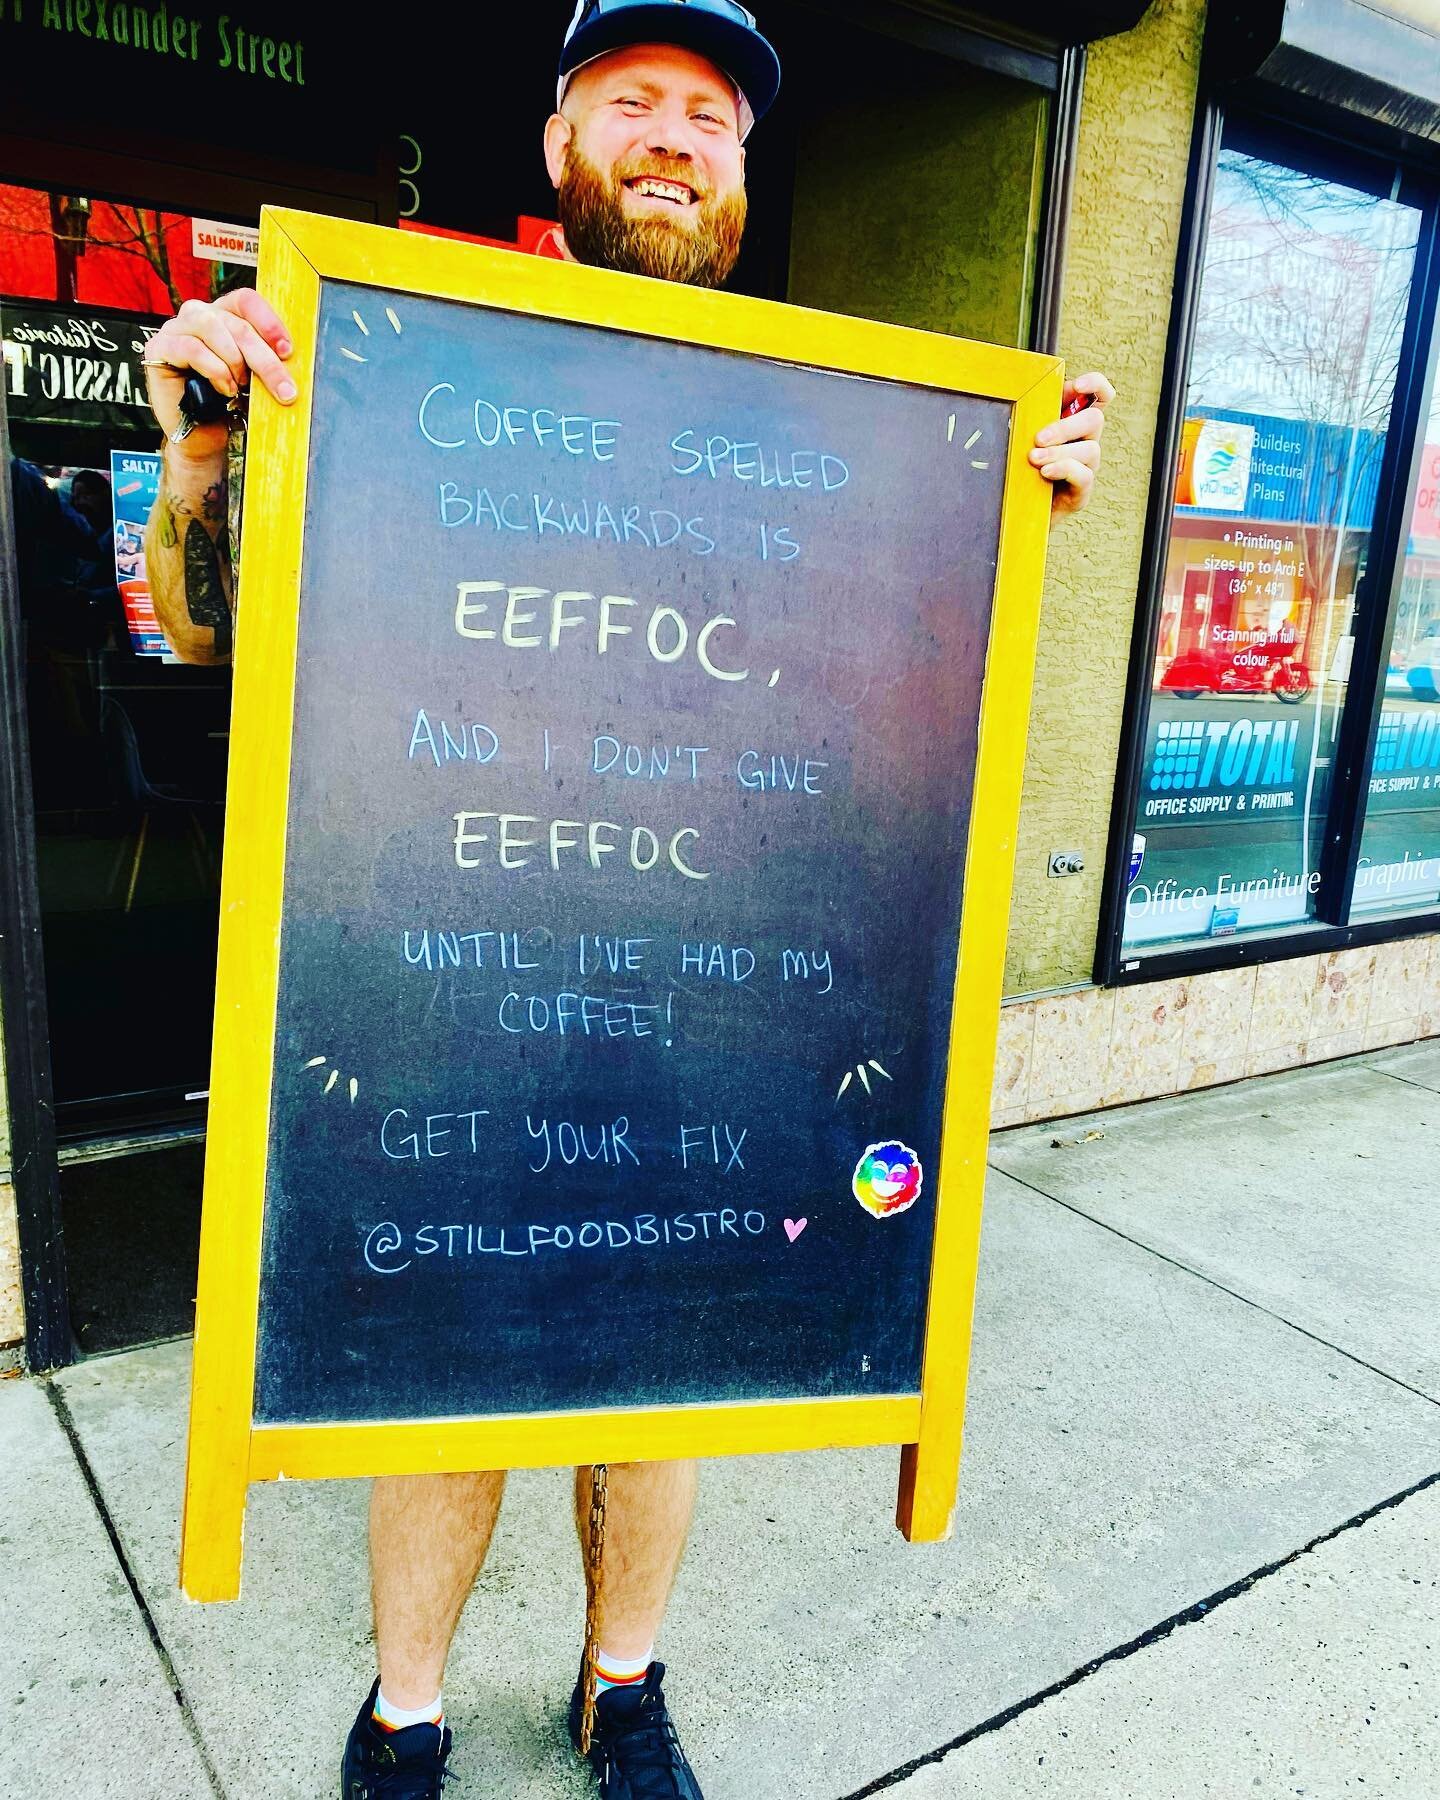 Alexander Street
SALMON AR
The Historic
CLASSIC T
SALTY
COFFEE SPELLED
BACKWARDS IS
EEFFOC,
AND I DON'T GIVE
EEFFOC
UNTIL I'VE HAD MY
COFFEE!
GET YOUR FIX
@STILLFOODBISTRO
Builders
Plans
• Printing in
sizes up to Arch E
(36" x 48")
• Scanning in full
colour
TOTAL
OFFICE SUPPLY & PRINTING
Office Furniture
Graphic